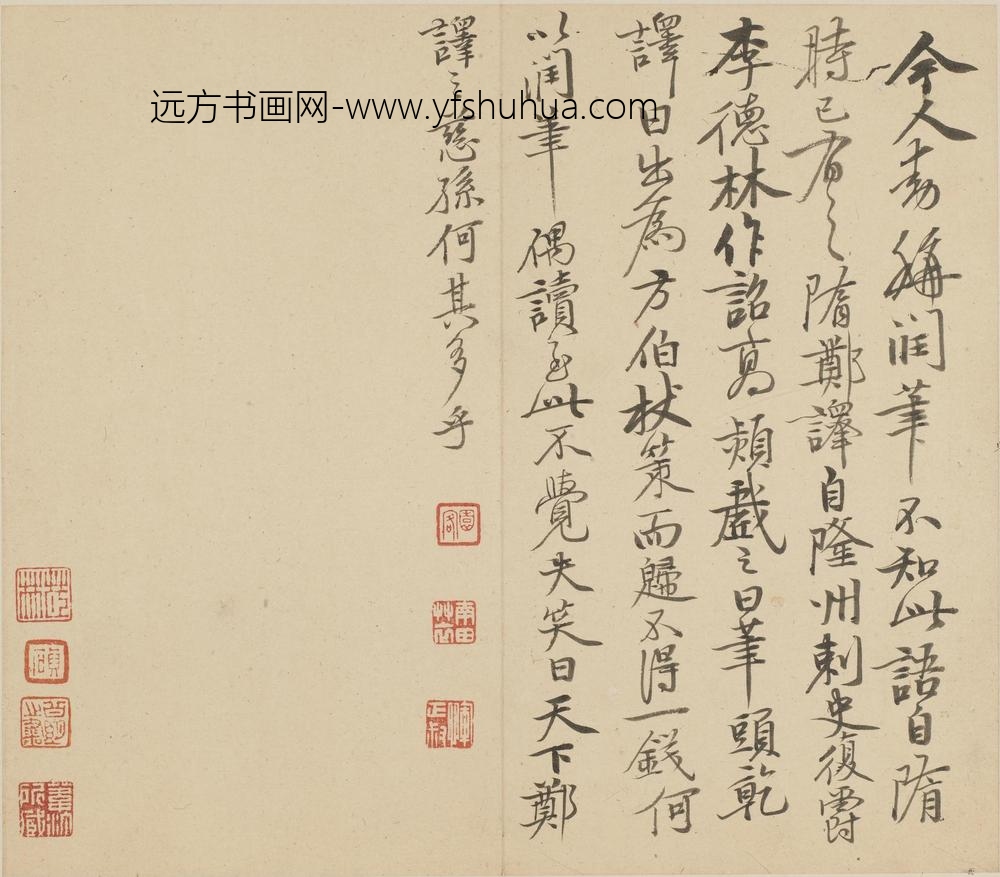 今人動稱润筆不知此語自隋
時已有之隋鄭譯自隆州刺史復爵
李德林作詔高熲戲之曰筆頭乾
譯曰出為方伯杖策而歸不得一錢何
以润筆偶讀至此不覺失笑曰天下鄭
譯之慈孫何其多乎
园客
南田草衣
惲正叔
远方书画网-www.yfshuhua.com